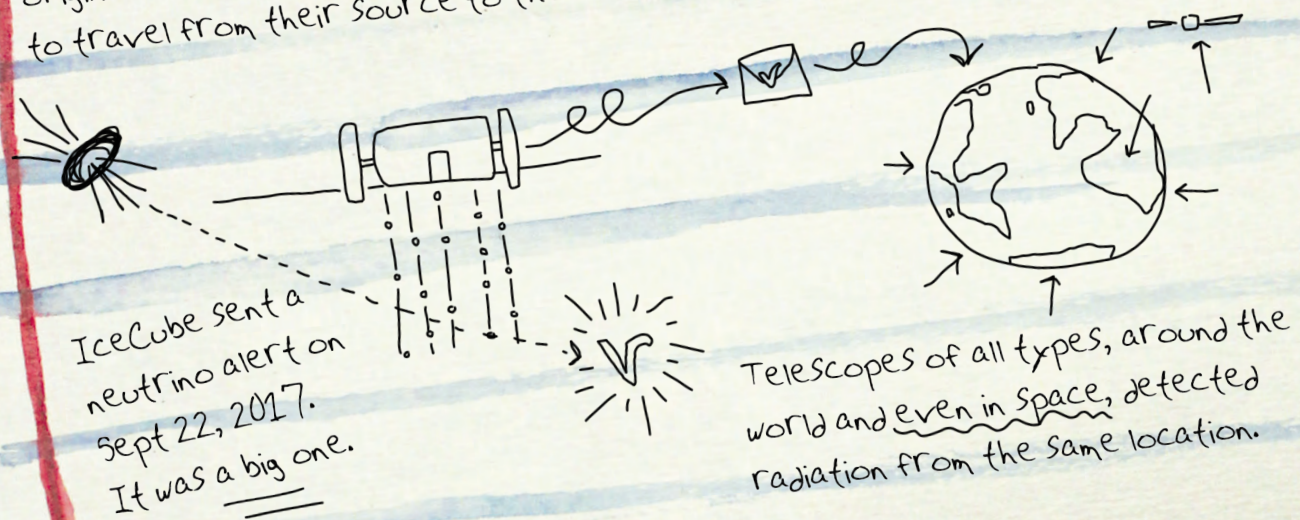 to travel from their source to
IceCube sent a
neutrino alert on
Sept 22, 2017.
It was a big one.
Telescopes of all types, around the
world and even in space, detected
radiation from the same location.